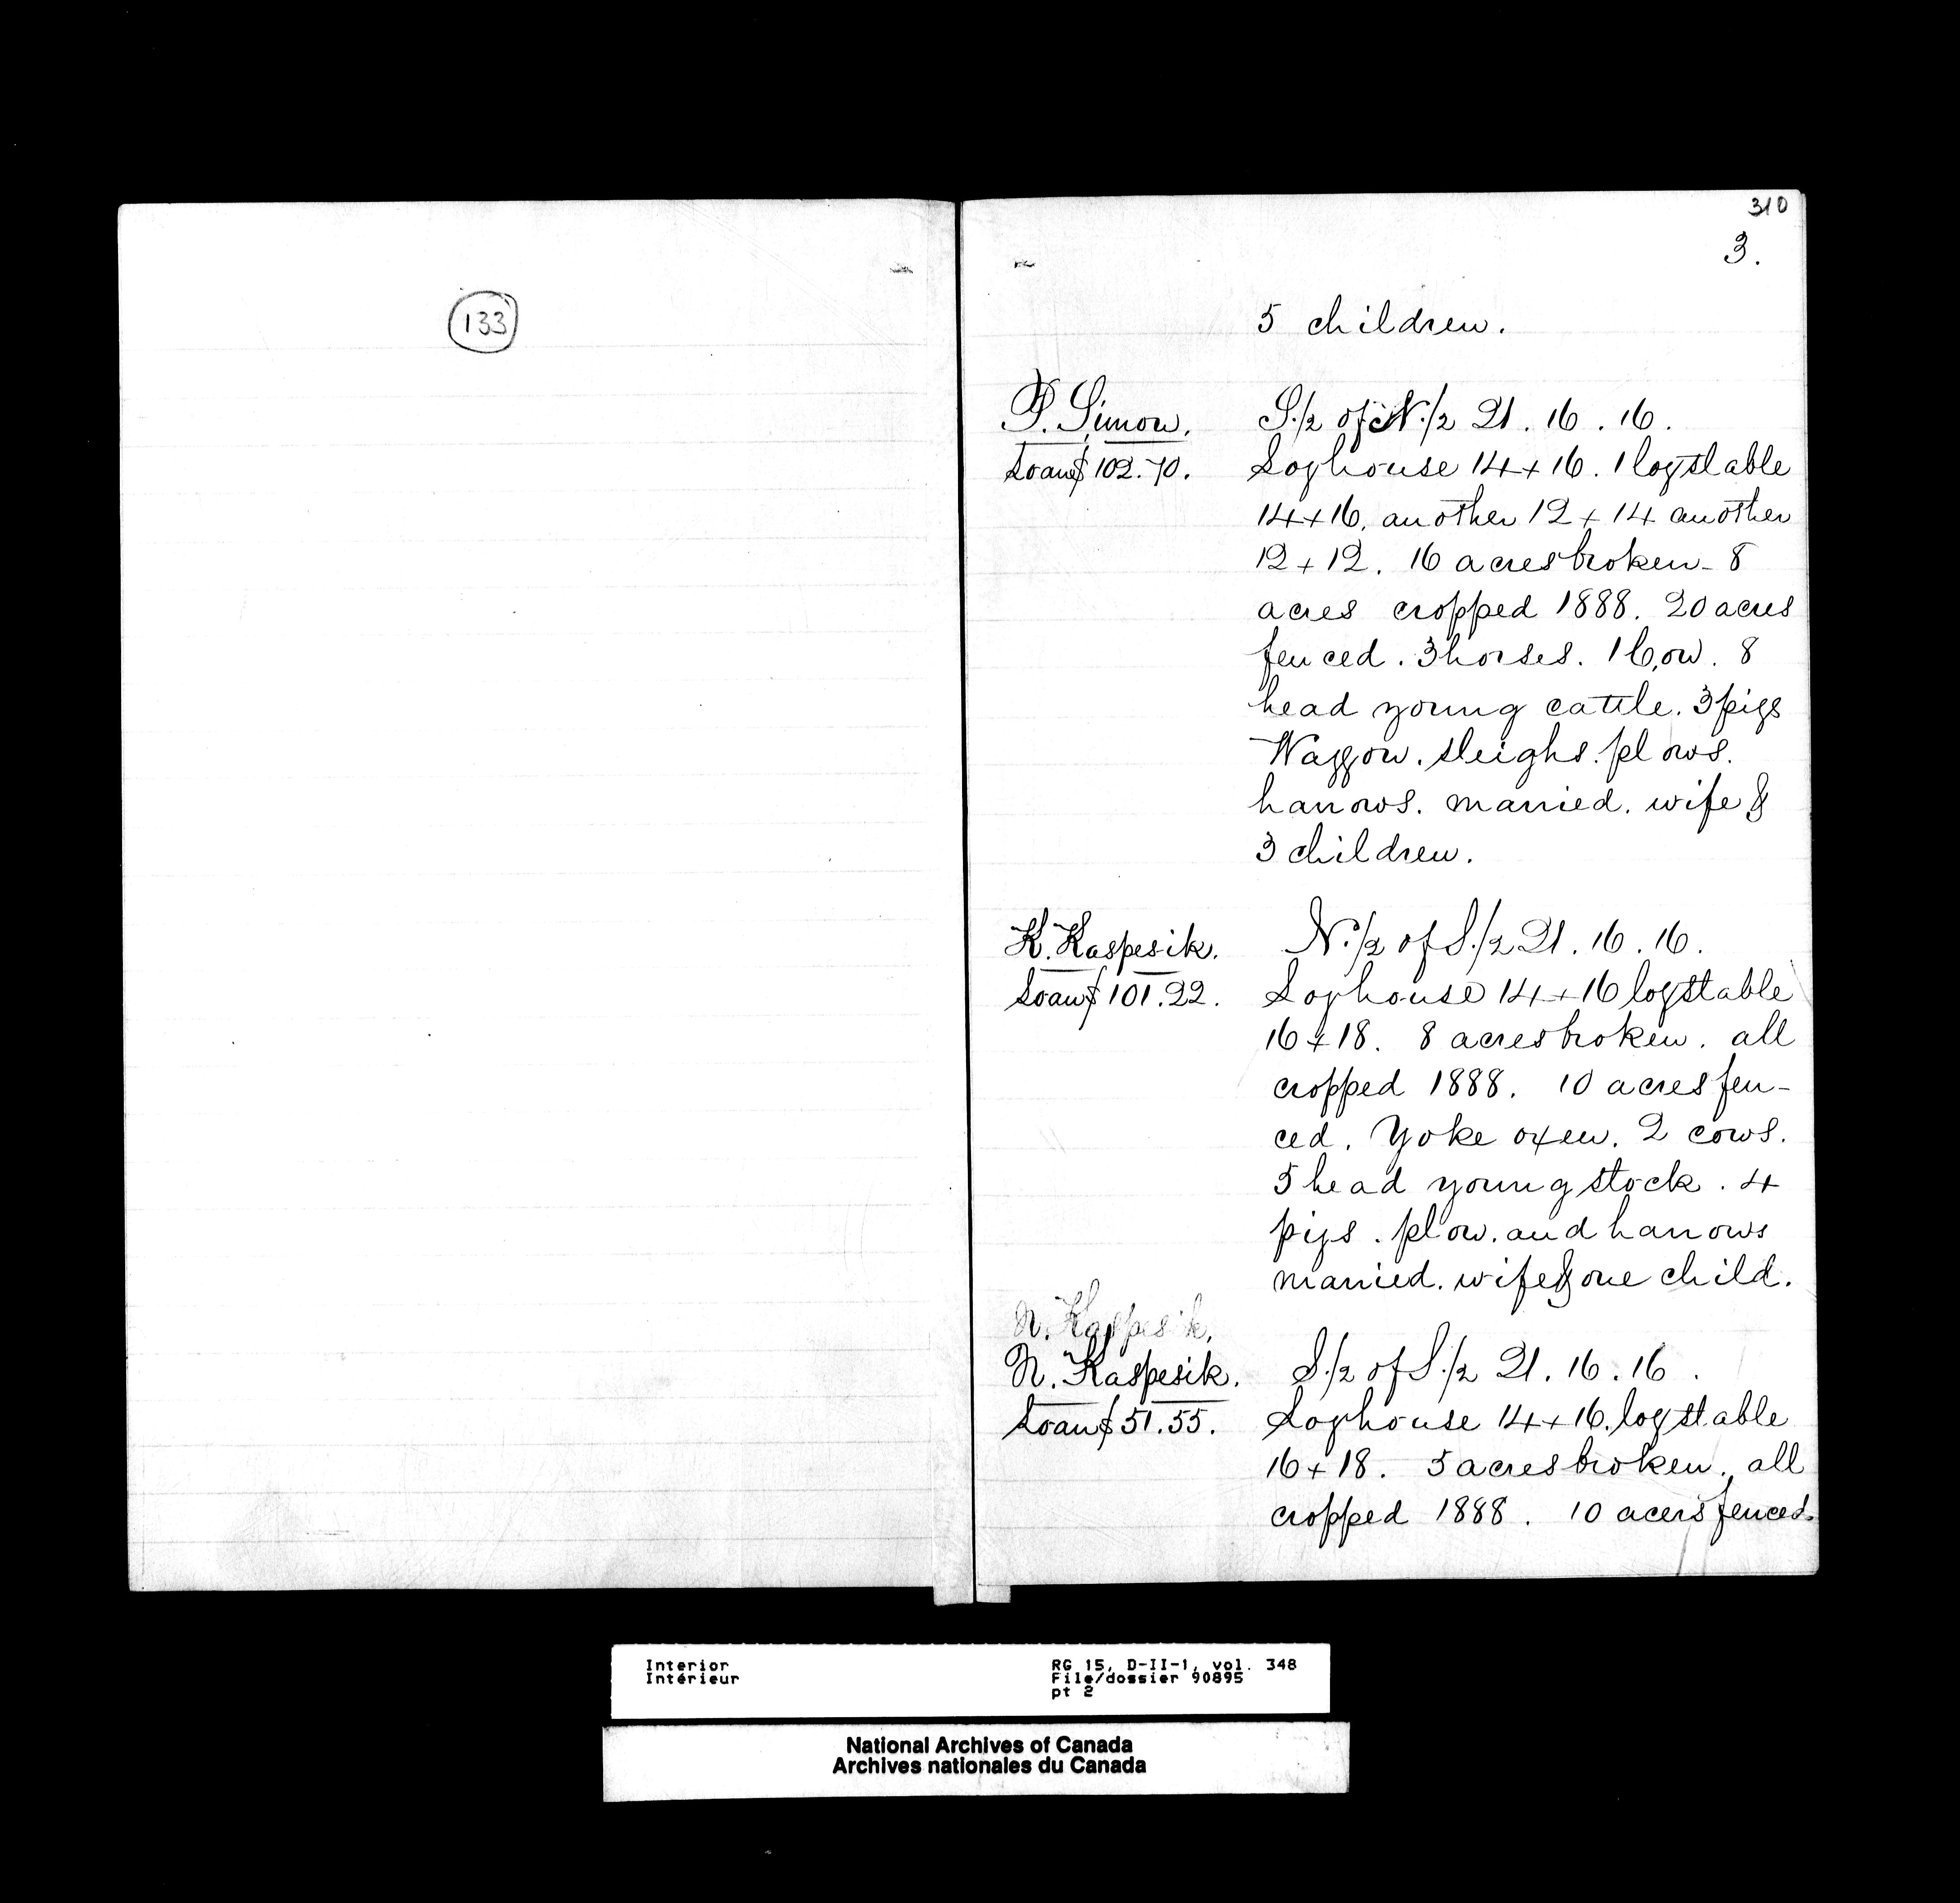 133
310
3.
5 children.
P. Simon. S.½ of N.½ 21. 16. 16.
Loan $102.70. Loghouse 14+16. 1 logstable
14+16. another 12+14 another
12+12. 16 acres broken - 8
acres cropped 1888. 20 acres
fenced. 3 horses. 1 Cow. 8
head young cattle. 3 pigs
Waggon. sleighs. plows.
harrows. married. wife &
3 children.
K. Kaspesik. N.½ of S.½ 21. 16. 16.
Loan $101.22. Loghouse 14+16 logstable
16+18. 8 acres broken. all
cropped 1888. 10 acres fen-
ced. Yoke oxen. 2 cows.
5 head young stock. 4
pigs. plow. and harrows
married. wife & one child.
N. Kaspesik.
N. Kaspesik. S.½ of S.½ 21. 16. 16.
Loan $51.55. Loghouse 14+16. logstable
16+18. 5 acres broken. all
cropped 1888. 10 acers fenced.
Interior RG 15, D-II-1, vol. 348
Intérieur File/dossier 90895
pt 2
National Archives of Canada
Archives nationales du Canada